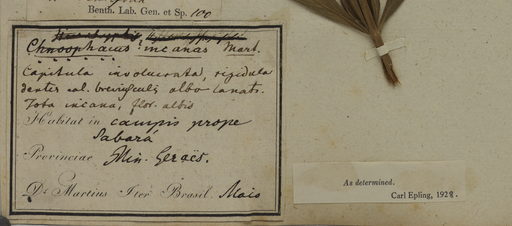 Benth. Lab. Gen. et Sp. 100
Chnoophacus incanus Mart.
Capitula involucrata, rigidula
dentes cal. breviusculi albo lanati.
Tota incana, flor. albis
Habitat in campis prope
Sabará
Provinciae Min. Geraës.
Dr Martius Iter Brasil. Maio
As determined.
Carl Epling, 1928.